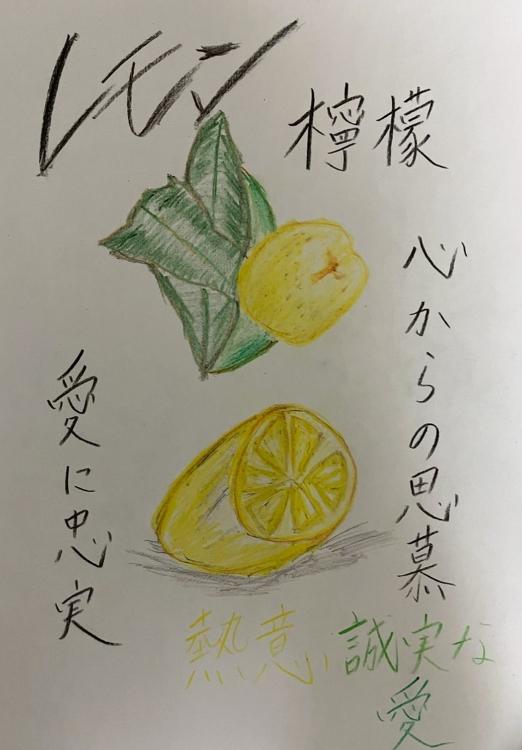 レモン
檸檬
心からの思慕
愛に忠実
熱意
誠実な
愛